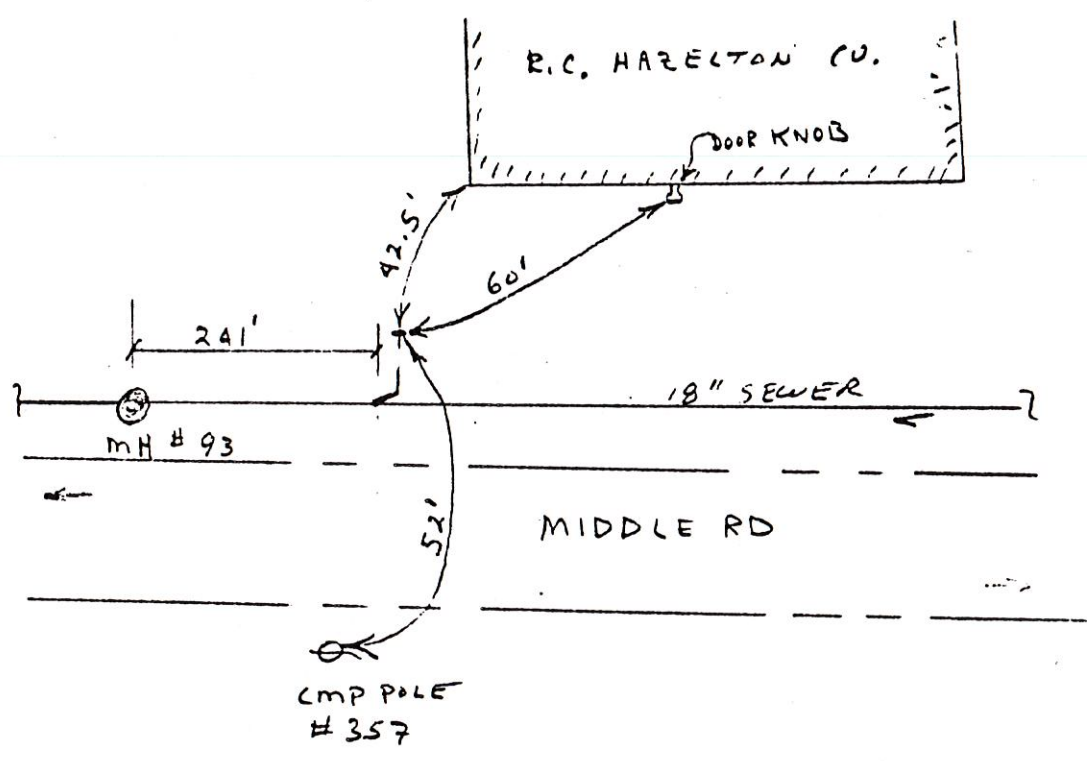 R.C. HAZELTON CO.
DOOR KNOB
42.5'
60'
241'
18" SEWER
MH # 93
52'
MIDDLE RD
CMP POLE
# 357